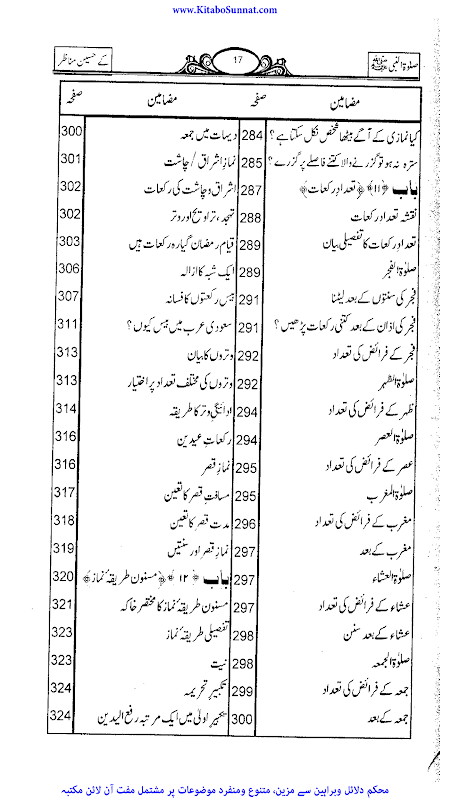 www.KitaboSunnat.com
صلوٰۃ النبی ﷺ
17
کے حسین مناظر
مضامین صفحہ
کیا نمازی کے آگے بیٹھا شخص نکل سکتا ہے؟ 284
سترہ نہ ہو تو گزرنے والا کتنے فاصلے پر گزرے؟ 285
باب ﴿۱۱﴾ ﴿تعداد رکعات﴾ 287
نقشہ تعداد رکعات 288
تعداد رکعات کا تفصیلی بیان 289
صلوٰۃ الفجر 289
فجر کی سنتوں کے بعد لیٹنا 291
فجر کی اذان کے بعد کتنی رکعات پڑھیں؟ 291
فجر کے فرائض کی تعداد 292
صلوٰۃ الظہر 292
ظہر کے فرائض کی تعداد 294
صلوٰۃ العصر 294
عصر کے فرائض کی تعداد 295
صلوٰۃ المغرب 295
مغرب کے فرائض کی تعداد 296
مغرب کے بعد 297
صلوٰۃ العشاء 297
عشاء کے فرائض کی تعداد 297
عشاء کے بعد سنن 298
صلوٰۃ الجمعہ 298
جمعہ کے فرائض کی تعداد 299
جمعہ کے بعد 300
مضامین صفحہ
دیہات میں جمعہ 300
نماز اشراق / چاشت 301
اشراق و چاشت کی رکعات 302
تہجد، تراویح اور وتر 302
قیام رمضان گیارہ رکعات ہیں 303
ایک شبہ کا ازالہ 306
بیس رکعتوں کا فسانہ 307
سعودی عرب میں بیس کیوں؟ 311
وتروں کا بیان 313
وتروں کی مختلف تعداد پر اختیار 313
ادائیگی وتر کا طریقہ 314
رکعات عیدین 316
نماز قصر 316
مسافت قصر کا تعین 317
مدت قصر کا تعین 318
نماز قصر اور سنتیں 319
باب ﴿۱۲﴾ ﴿مسنون طریقۂ نماز﴾ 320
مسنون طریقۂ نماز کا مختصر خاکہ 321
تفصیلی طریقۂ نماز 323
نیت 323
تکبیر تحریمہ 324
تکبیر اولیٰ میں ایک مرتبہ رفع الیدین 324
محکم دلائل وبراہین سے مزین، متنوع ومنفرد موضوعات پر مشتمل مفت آن لائن مکتبہ